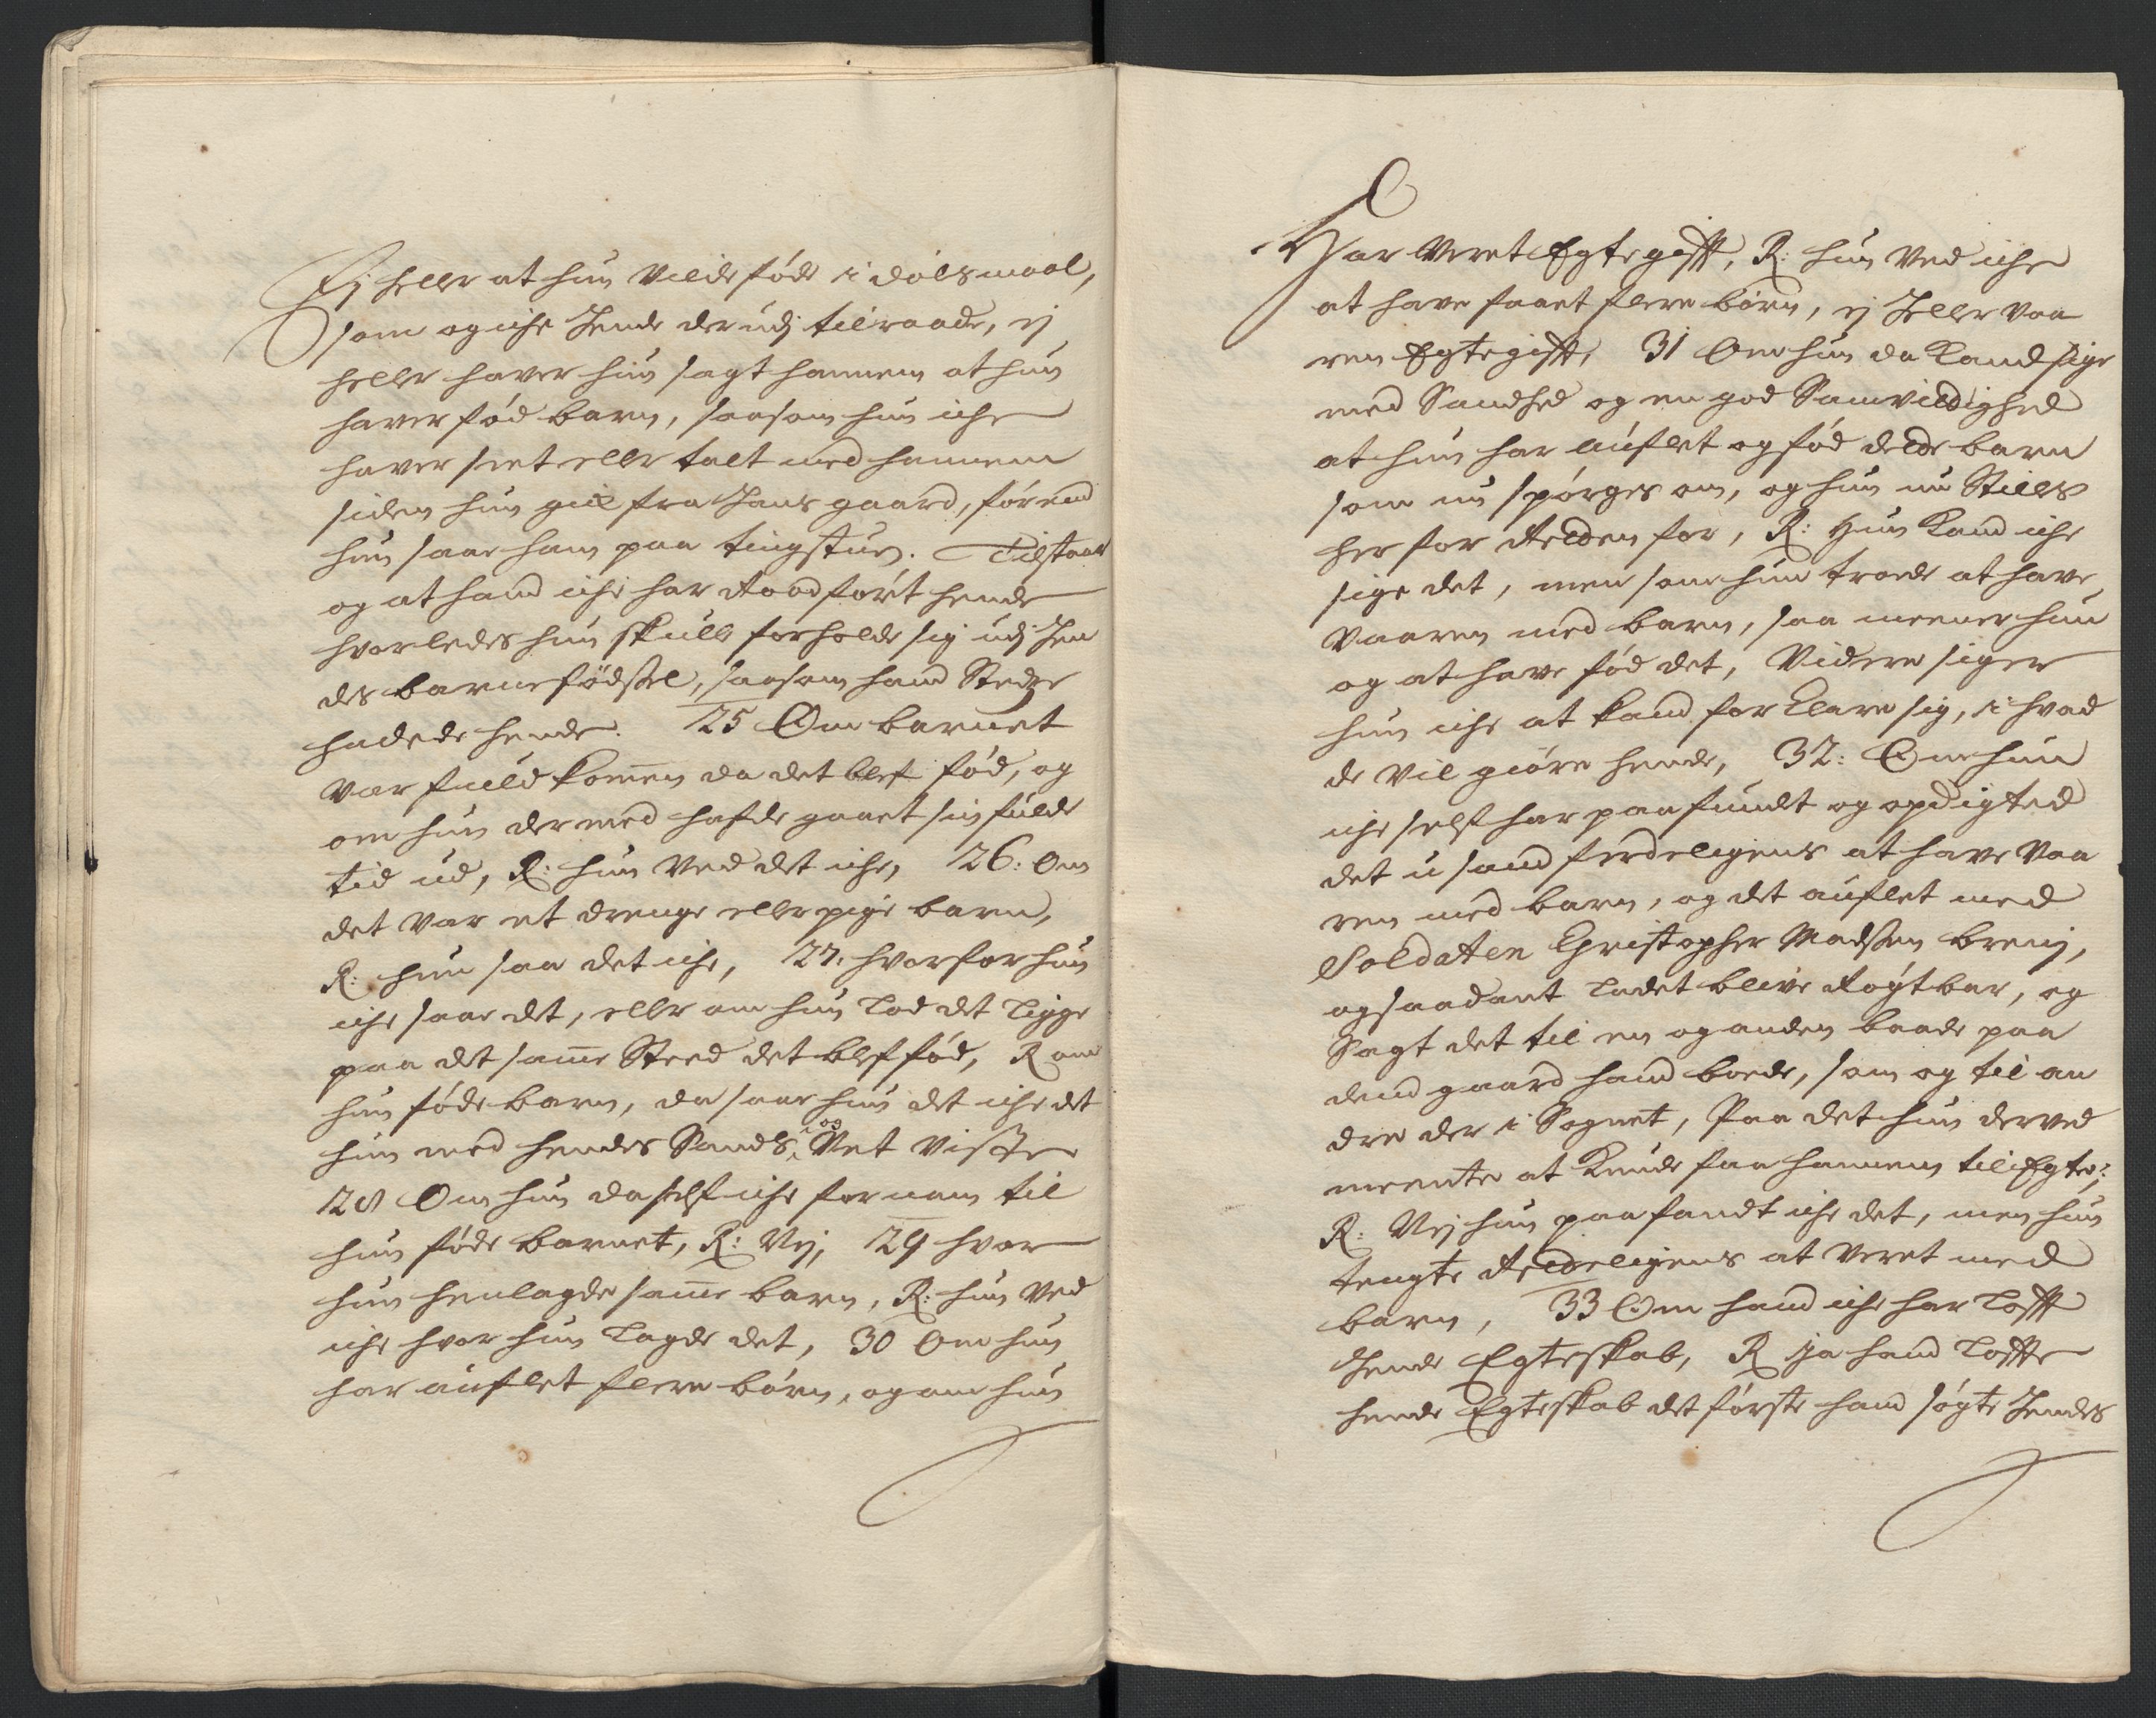 Ej heller at hun vilde føde i dølsmaal,
som og iche hende derudj tilraade, ej
heller haver hun sagt hannem at hun
haver fød barn, saasom hun iche
haver seet eller talt med hannem
siden hun gik fra hans gaard, førend
hun saae ham paa tingstuen. Tilstaar
og at hand iche har Raadført hende
hvorledes hun skulle forholde sig udj hen
des barnefødssel, saasom hand Stedze
hadede hende. 25 Om barnet
var fuldkom̅en da det blef fød, og
om hun dermed hafde gaaet sin fulde
tid ud, R: hun ved det iche, 26: Om
det var et drenge eller pige barn,
R: hun saa det iche, 27: hvorfor hun
iche saae det, eller om hun lod det ligge
paa det sam̅e Steed det blef fød, R om
hun føde barn, da saae hun det iche det
hun med hendes Sands, og Vet viste
28 Om hun da self iche fornam til
hun føde barnet, R: Nej, 29 hvor
hun henlagde sam̅e barn, R: hun ved
iche hvor hun lagde det, 30 Om hun
har auflet flere børn, og om hun
Har veret Egtegift, R: hun ved iche
at have faaet flere børn, ej heller vaa
ren Egtegift, 31 Om hun da kand sige
med Sandhed og en god Samvittighed
at hun har auflet og fød dette barn
som nu spørges om, og hun nu Stilles
her for Retten for, R: Hun kand iche
sige det, men som hun troede at have
vaaren med barn, saa meener hun
og at have fød det, Videre siger
hun iche at kand forklare sig, i hvad
de vil giøre hende, 32: Om hun
iche self har paafundt og opdigted
det usandferdeligens at have vaa
ren med barn, og det auflet med
Soldaten Christopher Madsen brenj,
og saadant ladet blive Røgtbar, og
Sagt det til en og anden baade paa
dend gaard hand boede, som og til an
dre der i Sognet, Paa det hun derved
meente at kunde faa hannem til Egte;
R: Nej hun paafandt iche det, men hun
tengte Retteligens at veret med
barn, 33 Om hand iche har lofft
hende Egteskab, R ja hand loffte
hende Egteskab det første hand søgte hendes